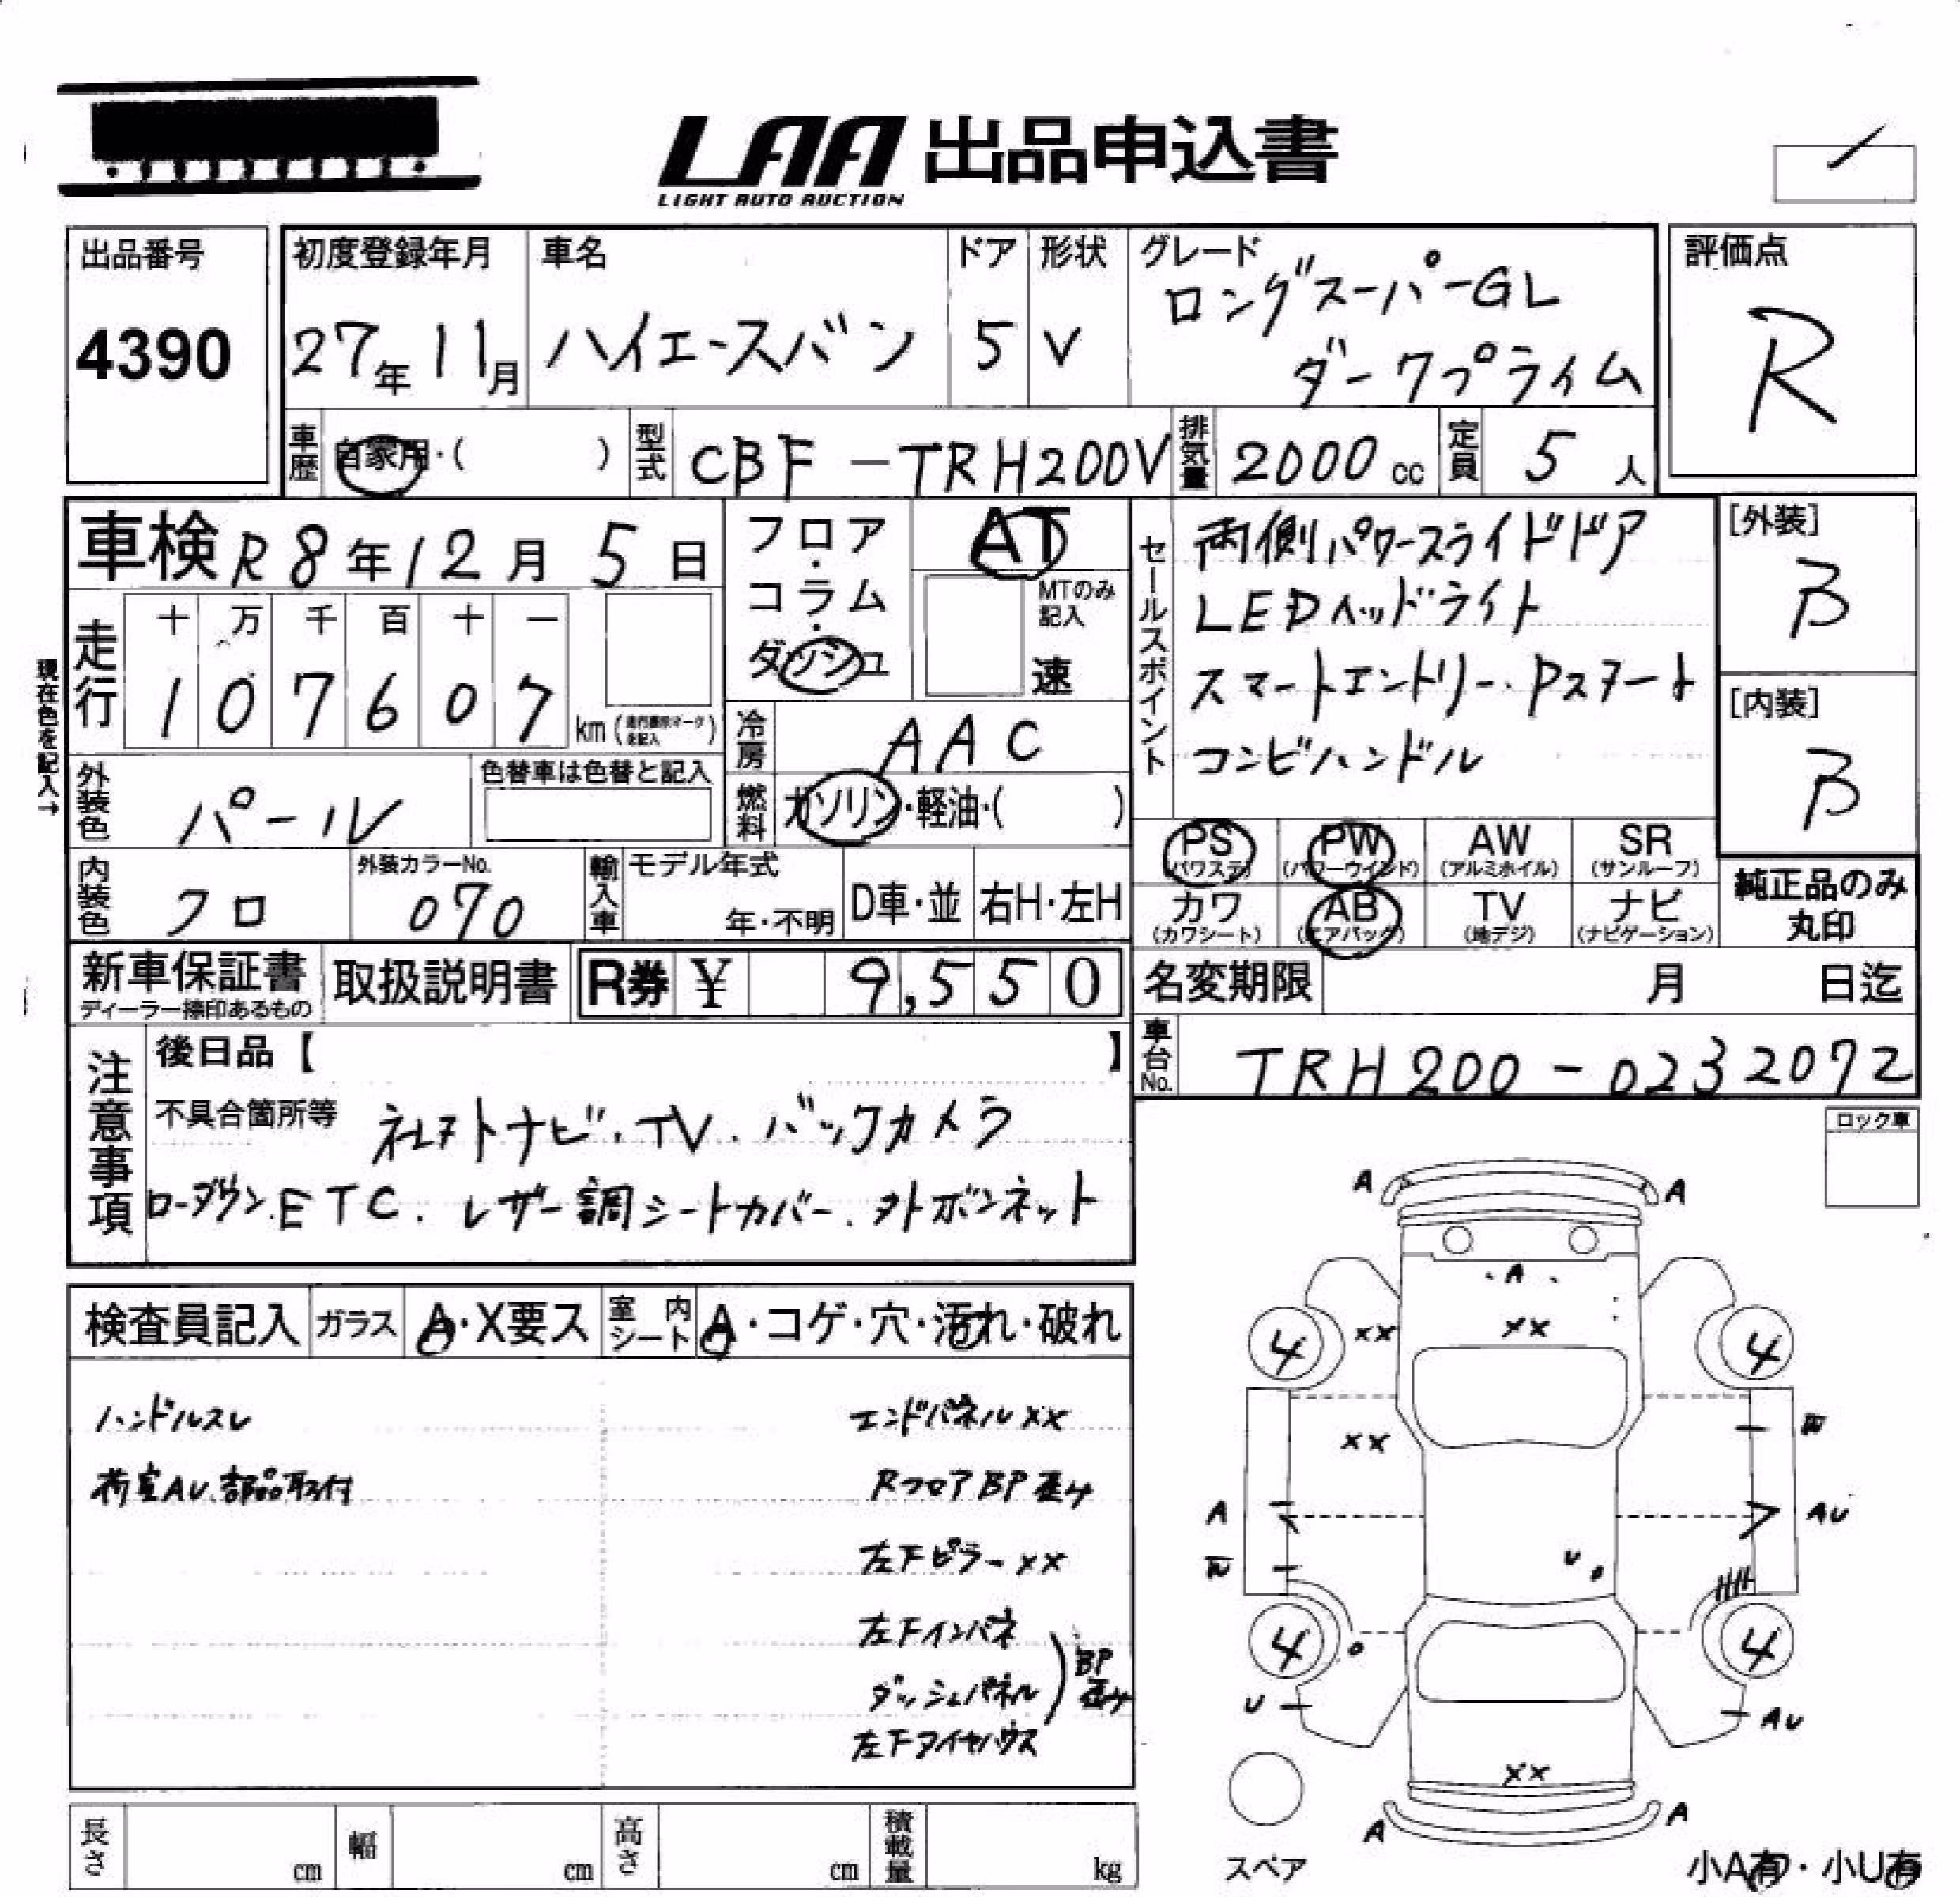 LAA 出品申込書
LIGHT AUTO AUCTION
出品番号
4390
初度登録年月
27年11月
車名
ハイエースバン
ドア
5
形状
V
グレード
ロングスーパーGL
ダークプライム
評価点
R
車歴
自家用・( )
型式
CBF-TRH200V
排気量
2000cc
定員
5人
車検 R8年12月5日
フロア・コラム・ダッシュ
AT
MTのみ記入
速
セールスポイント
両側パワースライドドア
LEDヘッドライト
スマートエントリー.Pスタート
コンビハンドル
[外装]
B
[内装]
B
現在色を記入→
走行
十万千百十一
107607
km( )
冷房
AAC
外装色
パール
色替車は色替と記入
燃料
ガソリン・軽油・( )
PS (パワステ)
PW (パワーウインド)
AW (アルミホイル)
SR (サンルーフ)
内装色
クロ
外装カラーNo.
070
輸入車
モデル年式
年・不明
D車・並
右H・左H
カワ (カワシート)
AB (エアバッグ)
TV (地デジ)
ナビ (ナビゲーション)
純正品のみ丸印
新車保証書
ディーラー捺印あるもの
取扱説明書
R券 ¥ 9,550
名変期限 月 日迄
車台No.
TRH200-0232072
注意事項
後日品【 】
不具合箇所等
社外ナビ.TV.バックカメラ
ローダウン.ETC.レザー調シートカバー.外ボンネット
ロック車
検査員記入
ガラス
A・X要ス
室内シート
A・コゲ・穴・汚れ・破れ
ハンドルスレ
荷室AU、部品取付
エンドパネルXX
RフロアBP歪み
左下ピラーXX
左下インパネ
ダッシュパネル
BP歪み
左下タイヤハウス
A A
A
4 XX XX 4
XX
A AU
U
4 4
U AU
XX
A A
スペア
小A有・小U有
長さ cm
幅 cm
高さ cm
積載量 kg